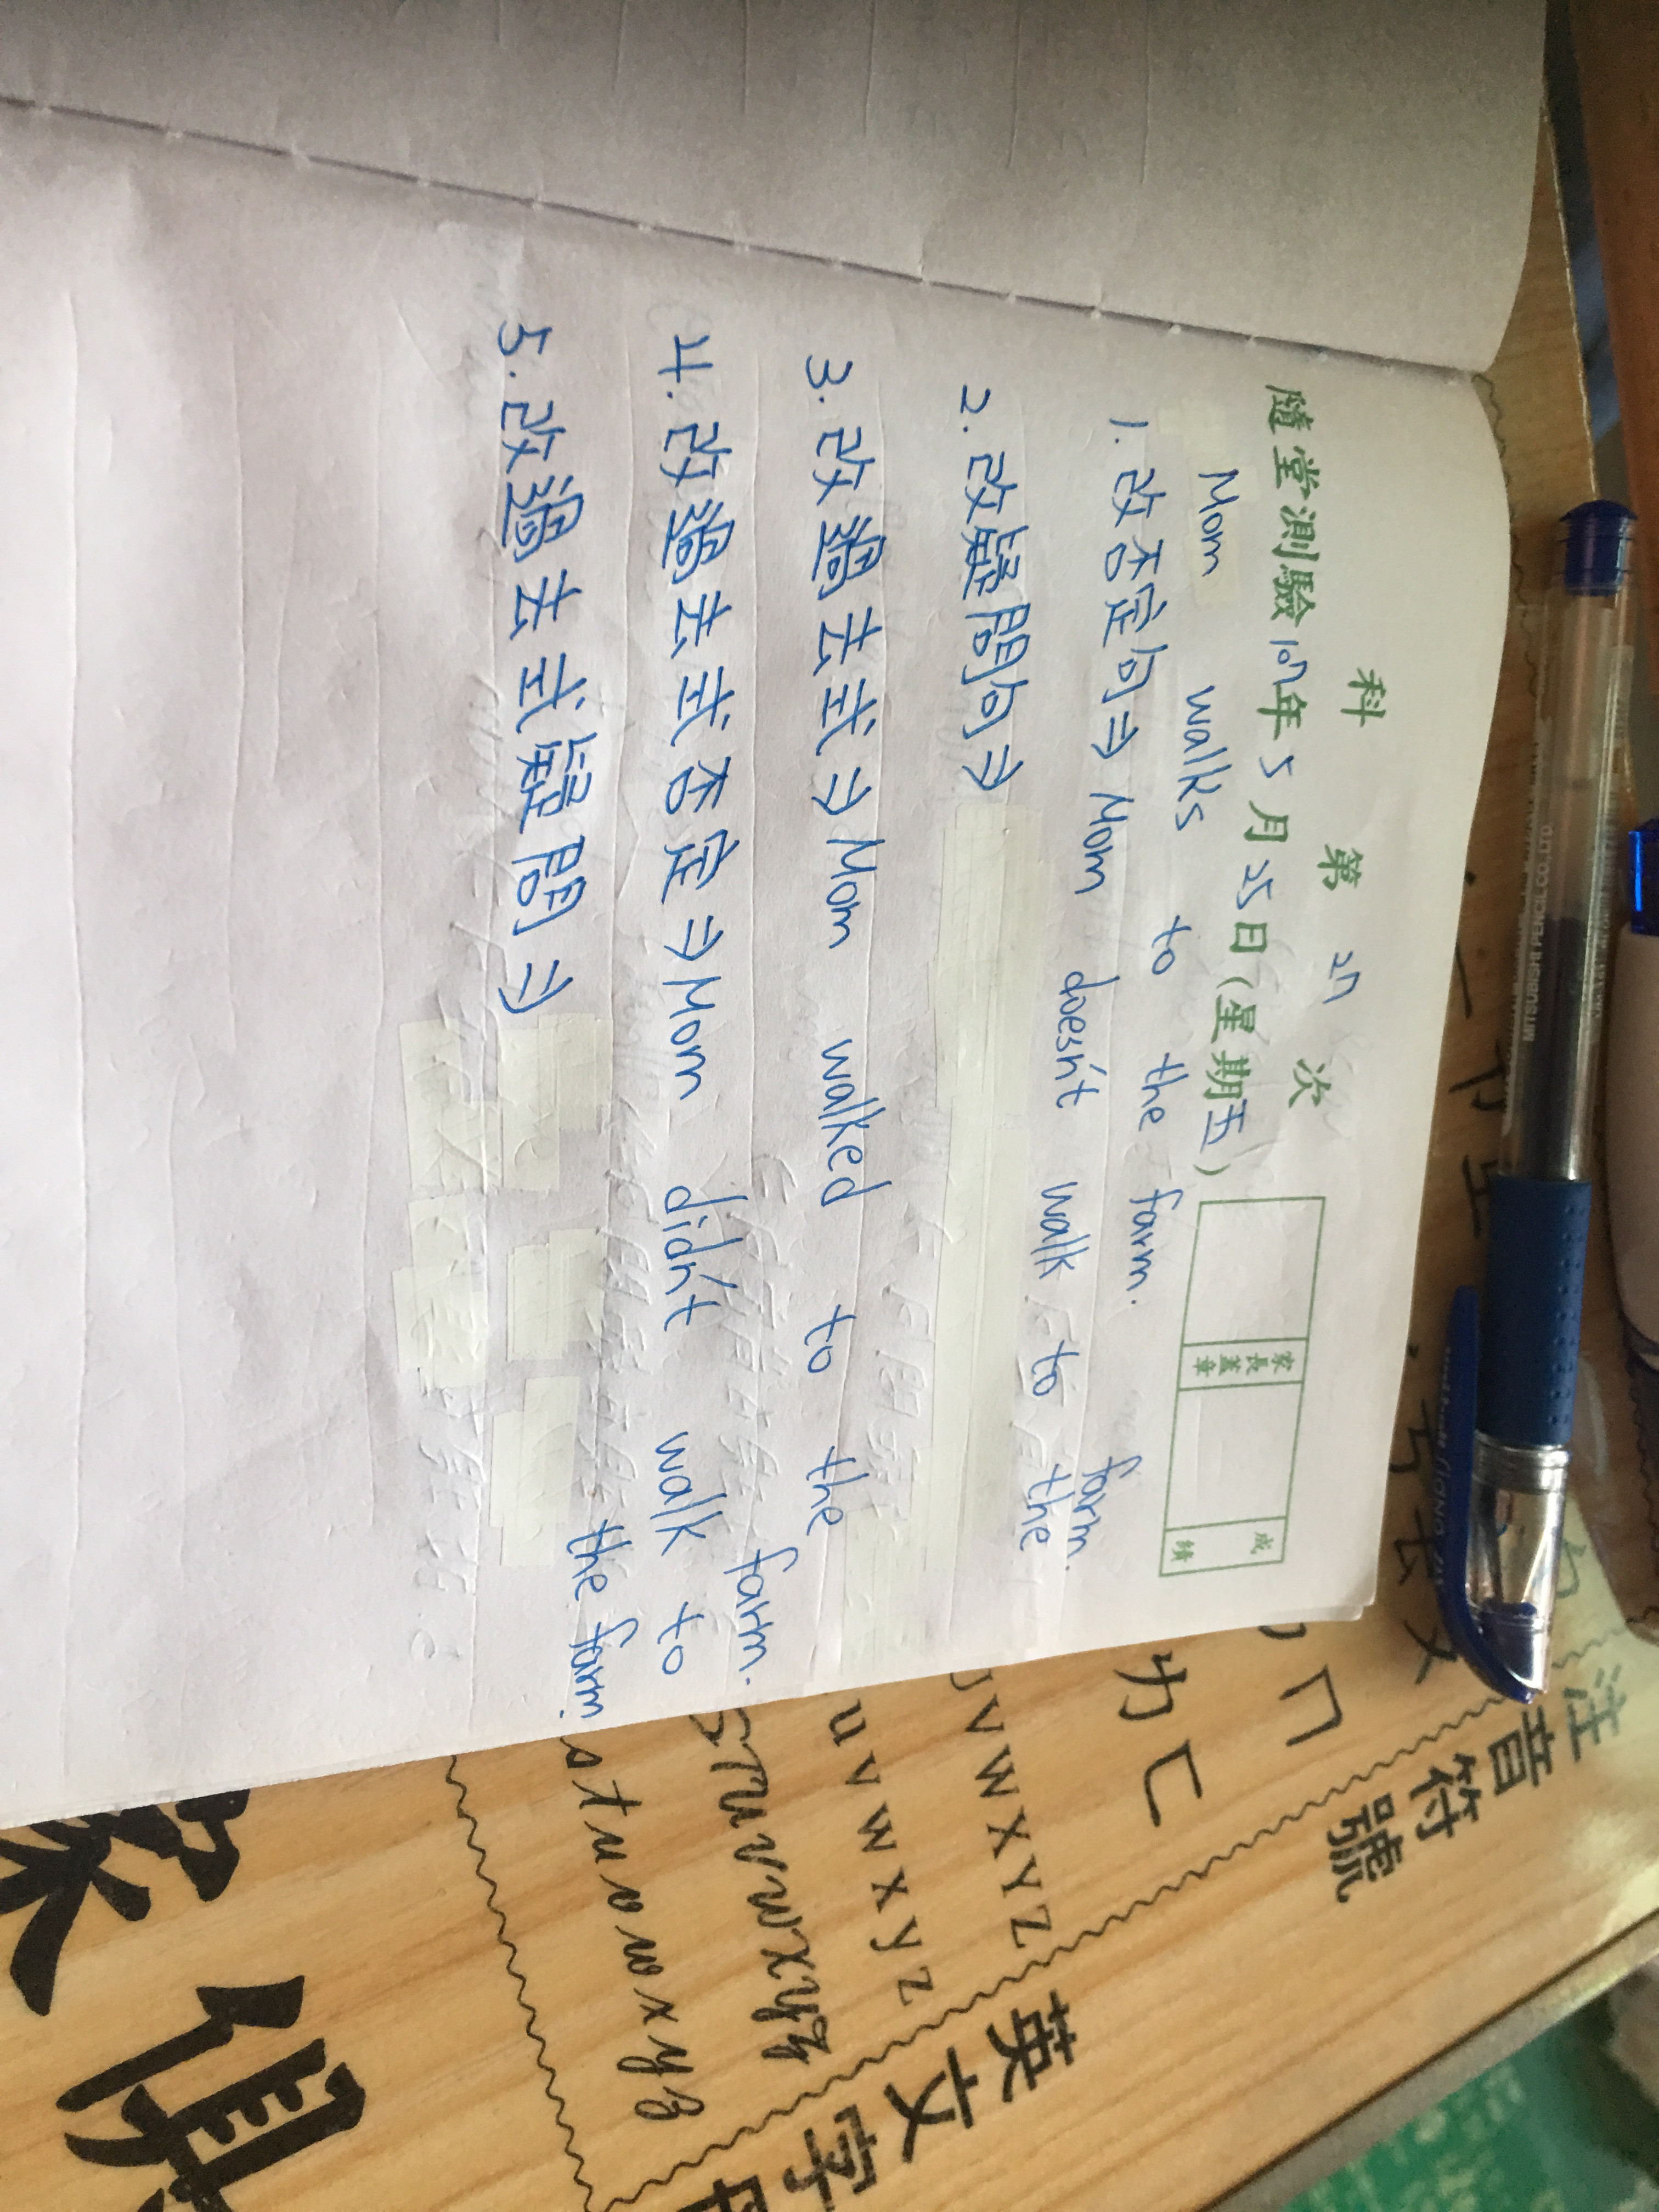 科 第 27 次
隨堂測驗 107年 5 月 25 日(星期五)
家長蓋章
成績
Mom walks to the farm.
1. 改否定句⇒ Mom doesn't walk to the farm.
2. 改疑問句⇒
3. 改過去式⇒ Mom walked to the farm.
4. 改過去式否定⇒ Mom didn't walk to the farm.
5. 改過去式疑問⇒
MITSUBISHI PENCIL CO., LTD.
注音符號
ㄅ ㄈ
v w x y z
u v w x y z
S T U V W X Y Z
s t u v w x y z
英文字